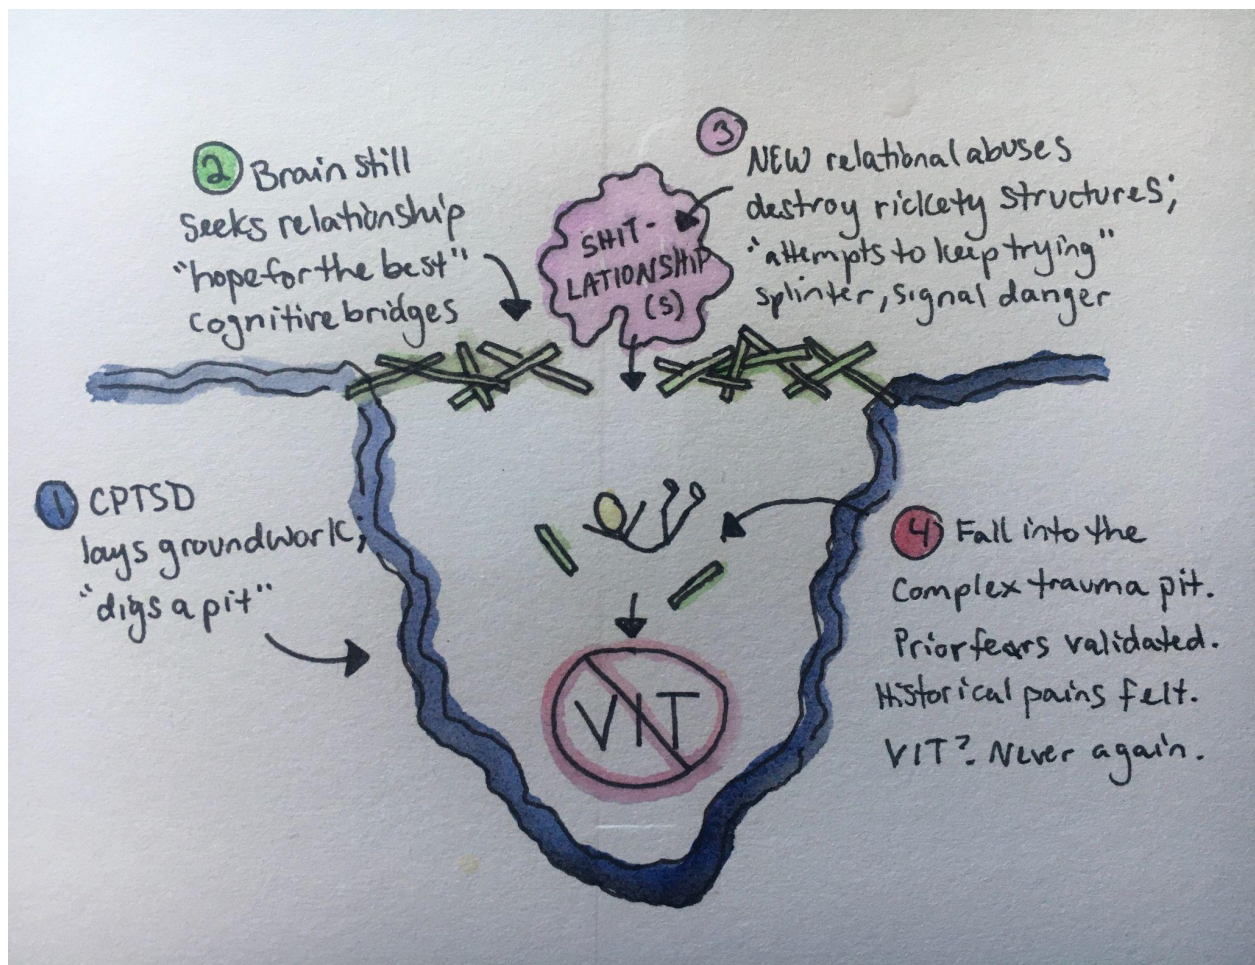 2 Brain still
seeks relationship
"hope for the best"
cognitive bridges
3 NEW relational abuses
destroy rickety structures;
"attempts to keep trying"
splinter, signal danger
SHIT-
LATIONSHIP
(S)
1 CPTSD
lays groundwork;
"digs a pit"
4 Fall into the
Complex trauma pit.
Prior fears validated.
Historical pains felt.
VIT? Never again.
VIT